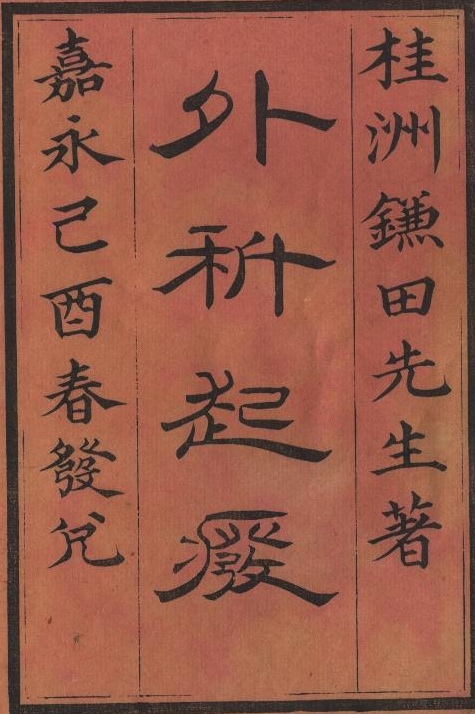 桂洲鎌田先生著
外科起癈
嘉永己酉春發兌